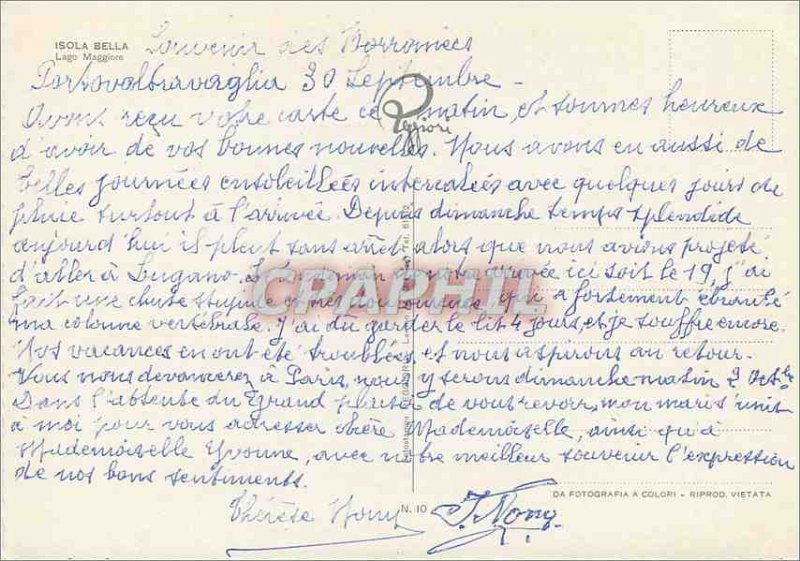 ISOLA BELLA
Lago Maggiore
Souvenir des Borromées
Portovaltravaglia 30 Septembre -
Avons reçu votre carte ce matin, et sommes heureux
d'avoir de vos bonnes nouvelles. Nous avons eu aussi de
belles journées ensoleillées intercalées avec quelques jours de
pluie surtout à l'arrivée. Depuis dimanche temps splendide
aujourd'hui il pleut sans arrêt alors que nous avions projeté
d'aller à Lugano. notre arrivée ici soit le 19, j'ai
fait une chute stupide et qui a fortement ébranlé
ma colonne vertébrale. J'ai dû garder le lit 4 jours, et je souffre encore.
Nos vacances en ont été troublées, et nous aspirons au retour.
Vous nous devancerez à Paris, nous y serons dimanche matin 2 Octbre
Dans l'attente du grand plaisir de vous revoir, mon mari s'unit
à moi pour vous adresser chère Mademoiselle, ainsi qu'à
Mademoiselle Yvonne, avec notre meilleur souvenir l'expression
de nos bons sentiments.
CRAPHIL
DA FOTOGRAFIA A COLORI - RIPROD. VIETATA
N. 10
Thérèse Nony